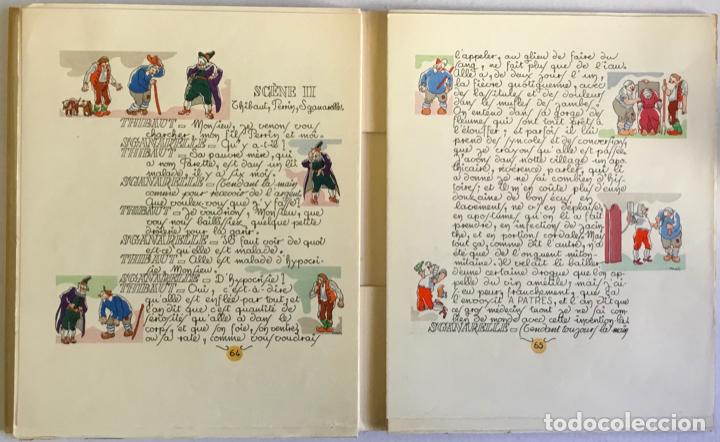 SCÈNE II
Thibaut, Perrin, Sganarelle
THIBAUT – Monsieu, je venon vou
charcher, mon fil Perrin et moi.
SGANARELLE – Qu'y a-t-il ?
THIBAUT – Sa pauvre mère, qui
a nom Parette, est dans un lit
malade, il y a six moi.
SGANARELLE – Tendant la main
comme pour recevoir de l'argent.
Que voulez-vou que j'y fasse ?
THIBAUT – Je voudrion, Monsieu, que
vou nous bailliiez quelque petite
drôlerie pour la garir.
SGANARELLE – Il faut voir de quoi
est-ce qu'elle est malade.
THIBAUT – Alle est malade d'hypocri-
sie, Monsieu.
SGANARELLE – D'hypocrisie !
THIBAUT – Oui, c'est-à-dire
qu'alle est enflée par tout; et
l'an dit que c'est quantité de
sériosité qu'alle a dans le
corps, et que son foie, son ventre,
ou sa rate, comme vou voudrais
64
l'appeler, au glieu de faire du
sang, ne fait plus que de l'iau.
Alle a, de deux jours l'un,
la fièvre quotiguenne, avec
de lassitules et de douleur
dans le mufles de jambe.
On entend dans sa gorge de
fleumes qui sont tout prêts à
l'étouffer; et parfois il lui
prend de syncoles et de conversion,
que je crayon qu'alle est passée.
J'avon dans notte village un apo-
thicaire, révérence parler, qui li
a donné je ne sai combien d'his-
toires; et il m'en coûte plus d'eune
douzaine de bon écus en
lavement, ne v's en déplaise,
en apostumes qu'on li a fait
prendre, en infection de jacin-
the, et en portion cordales. Mais
tout ça, comme dit l'autre, n'a
été que de l'onguent miton-
mitaine. Il velait li bailler
d'eune certaine drogue que l'on ap-
pelle du vin amétile; mais j'ai-
s-eu peur, franchement, que ça
l'envoyît A PATRES, et l'an dit que
ces gros médecins tuont je ne sai com-
bien de monde avec cette invention-là.
SGANARELLE – Tendant toujours la main
65
todocoleccion.net